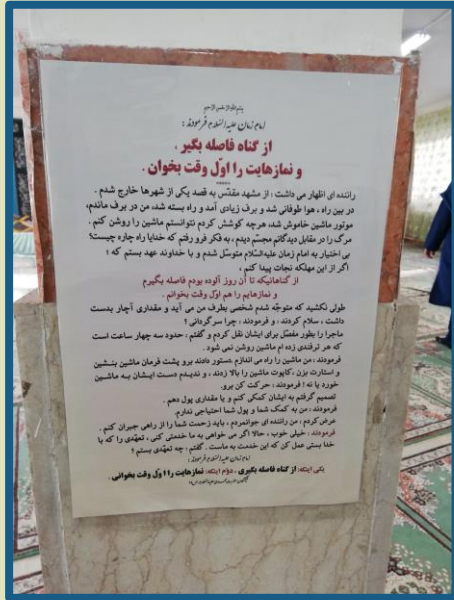 بسم الله الرحمن الرحیم
امام زمان علیه السلام فرمودند :
از گناه فاصله بگیر ،
و نمازهایت را اوّل وقت بخوان .
*****
راننده ای اظهار می داشت ، از مشهد مقدّس به قصد یکی از شهرها خارج شدم .
در بین راه ، هوا طوفانی شد و برف زیادی آمد و راه بسته شد، من در برف ماندم،
موتور ماشین خاموش شد، هرچه کوشش کردم نتوانستم ماشین را روشن کنم .
مرگ را در مقابل دیدگانم مجسّم دیدم ، به فکر فرو رفتم که خدایا راه چاره چیست؟
بی اختیار به امام زمان علیه‌السلام متوسّل شدم و با خداوند عهد بستم که ؛
اگر از این مهلکه نجات پیدا کنم ،
از گناهانیکه تا آن روز آلوده بودم فاصله بگیرم
و نمازهایم را هم اوّل وقت بخوانم .
طولی نکشید که متوجّه شدم شخصی بطرف من می آید و مقداری آچار بدست
داشت ، سلام کردند ، و فرمودند ، چرا سرگردانی ؟
ماجرا را بطور مفصّل برای ایشان نقل کردم و گفتم ، حدود سه چهار ساعت است
که هر ترفندی زده ام ماشین روشن نمی شود .
فرمودند : من ماشین را راه می اندازم .دستور دادند برو پشت فرمان ماشین بنشین
و استارت بزن .کاپوت ماشین را بالا زدند ، و ندیدم دست ایشان به ماشین
خورد یا نه ؛ فرمودند : حرکت کن برو.
تصمیم گرفتم به ایشان کمکی کنم و یا مقداری پول دهم .
فرمودند : من به کمک شما و پول شما احتیاجی ندارم.
عرض کردم ، من راننده ای جوانمردم ، باید زحمت شما را از راهی جبران کنم .
فرمودند : خیلی خوب ، حالا اگر می خواهی به ما خدمتی کنی ، تعهّدی را که با
خدا بستی عمل کن که این خدمت به ماست . گفتم ، چه تعهّدی بستم ؟
امام زمان علیه السلام فرمودند :
یکی اینکه: از گناه فاصله بگیری ، دوّم اینکه: نمازهایت را اوّل وقت بخوانی .